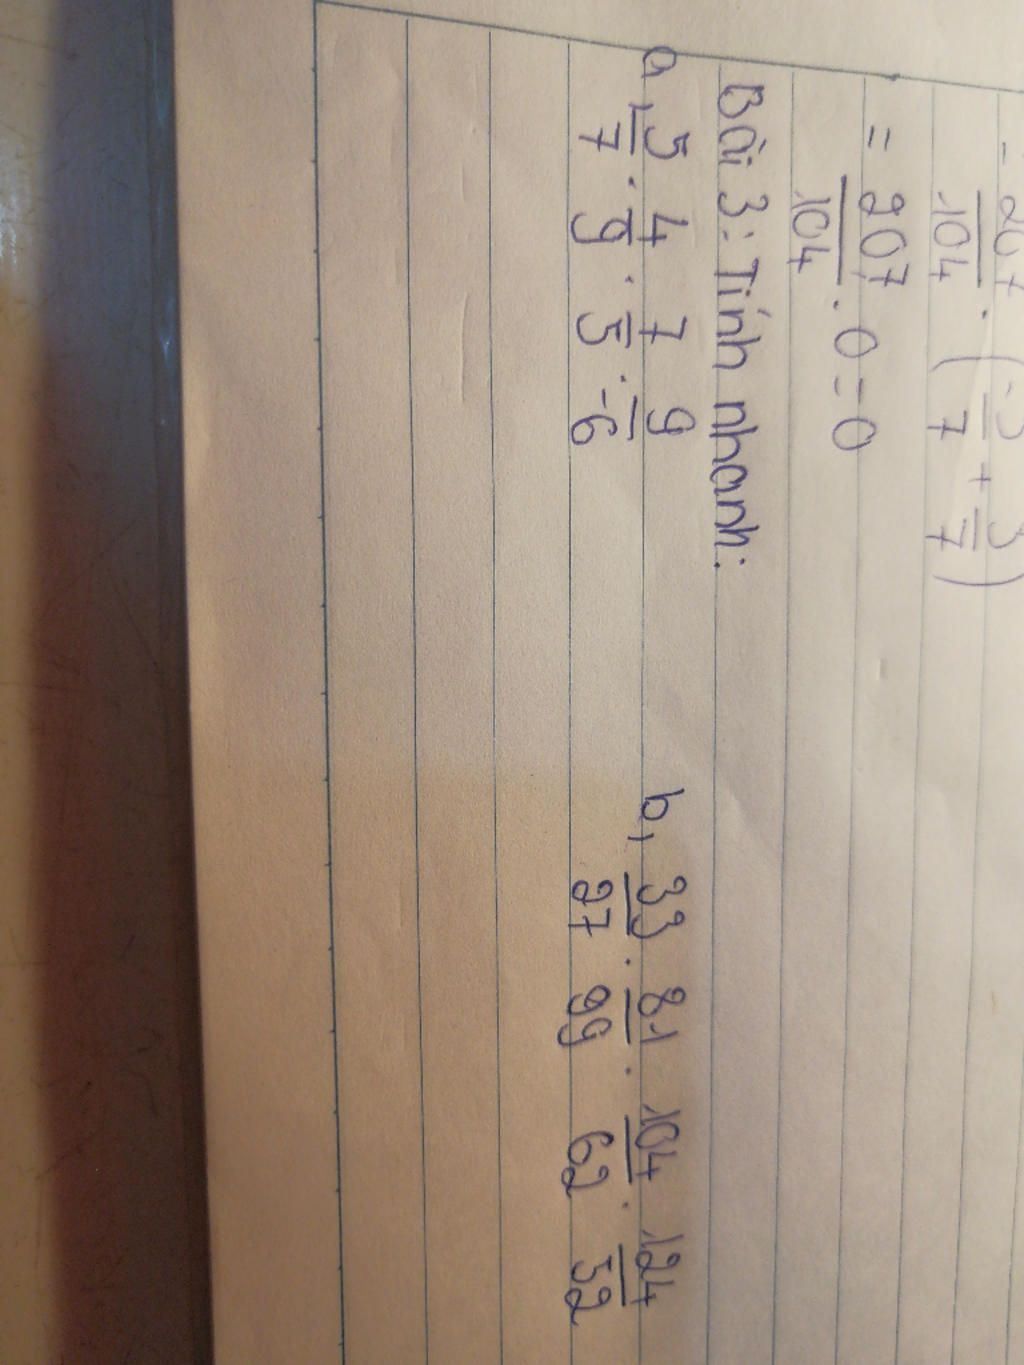 = 207/104 . (-3/7 + 3/7)
= 207/104 . 0 = 0
Bài 3: Tính nhanh:
a, 5/7 . 4/9 . 7/5 . 9/-6 b, 33/27 . 81/99 . 104/62 . 124/52